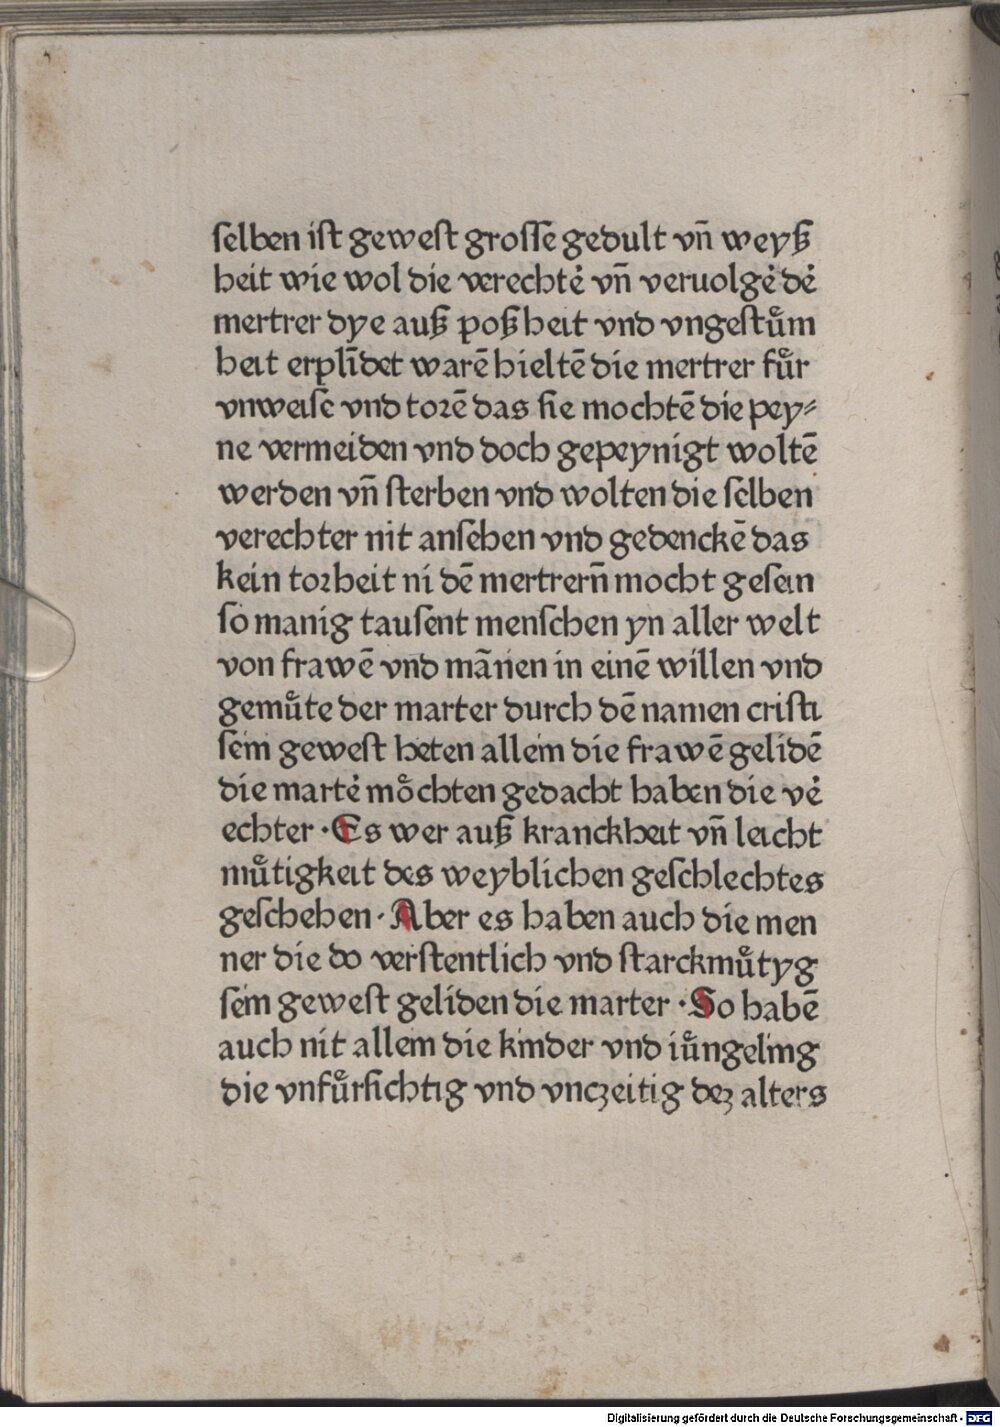 ſelben iſt geweſt groſſe gedult vñ weyß
heit wie wol die verechtė vñ veruolgė dė
mertrer dye auß poßheit vnd vngeſtuͤm
heit erplīdet warē hieltē die mertrer fuͤr
vnweiſe vnd torē das ſie mochtē die pey⸗
ne vermeiden vnd doch gepeynigt woltē
werden vñ ſterben vnd wolten die ſelben
verechter nit anſehen vnd gedenckē das
kein torheit ni dē mertrerñ mocht geſein
ſo manig tauſent menſchen yn aller welt
von frawē vnd mānen in einē willen vnd
gemuͤte der marter durch dē namen criſti
ſein geweſt heten allein die frawē gelidē
die martė moͤchten gedacht haben die vė
echter · Es wer auß kranckheit vñ leicht
muͤtigkeit des weyblichen geſchlechtes
geſchehen · Aber es haben auch die men
ner die do verſtentlich vnd ſtarckmuͤtyg
ſein geweſt geliden die marter · So habē
auch nit allein die kinder vnd iuͤngeling
die vnfuͤrſichtig vnd vnczeitig dez alters
Digitalisierung gefördert durch die Deutsche Forschungsgemeinschaft - DFG